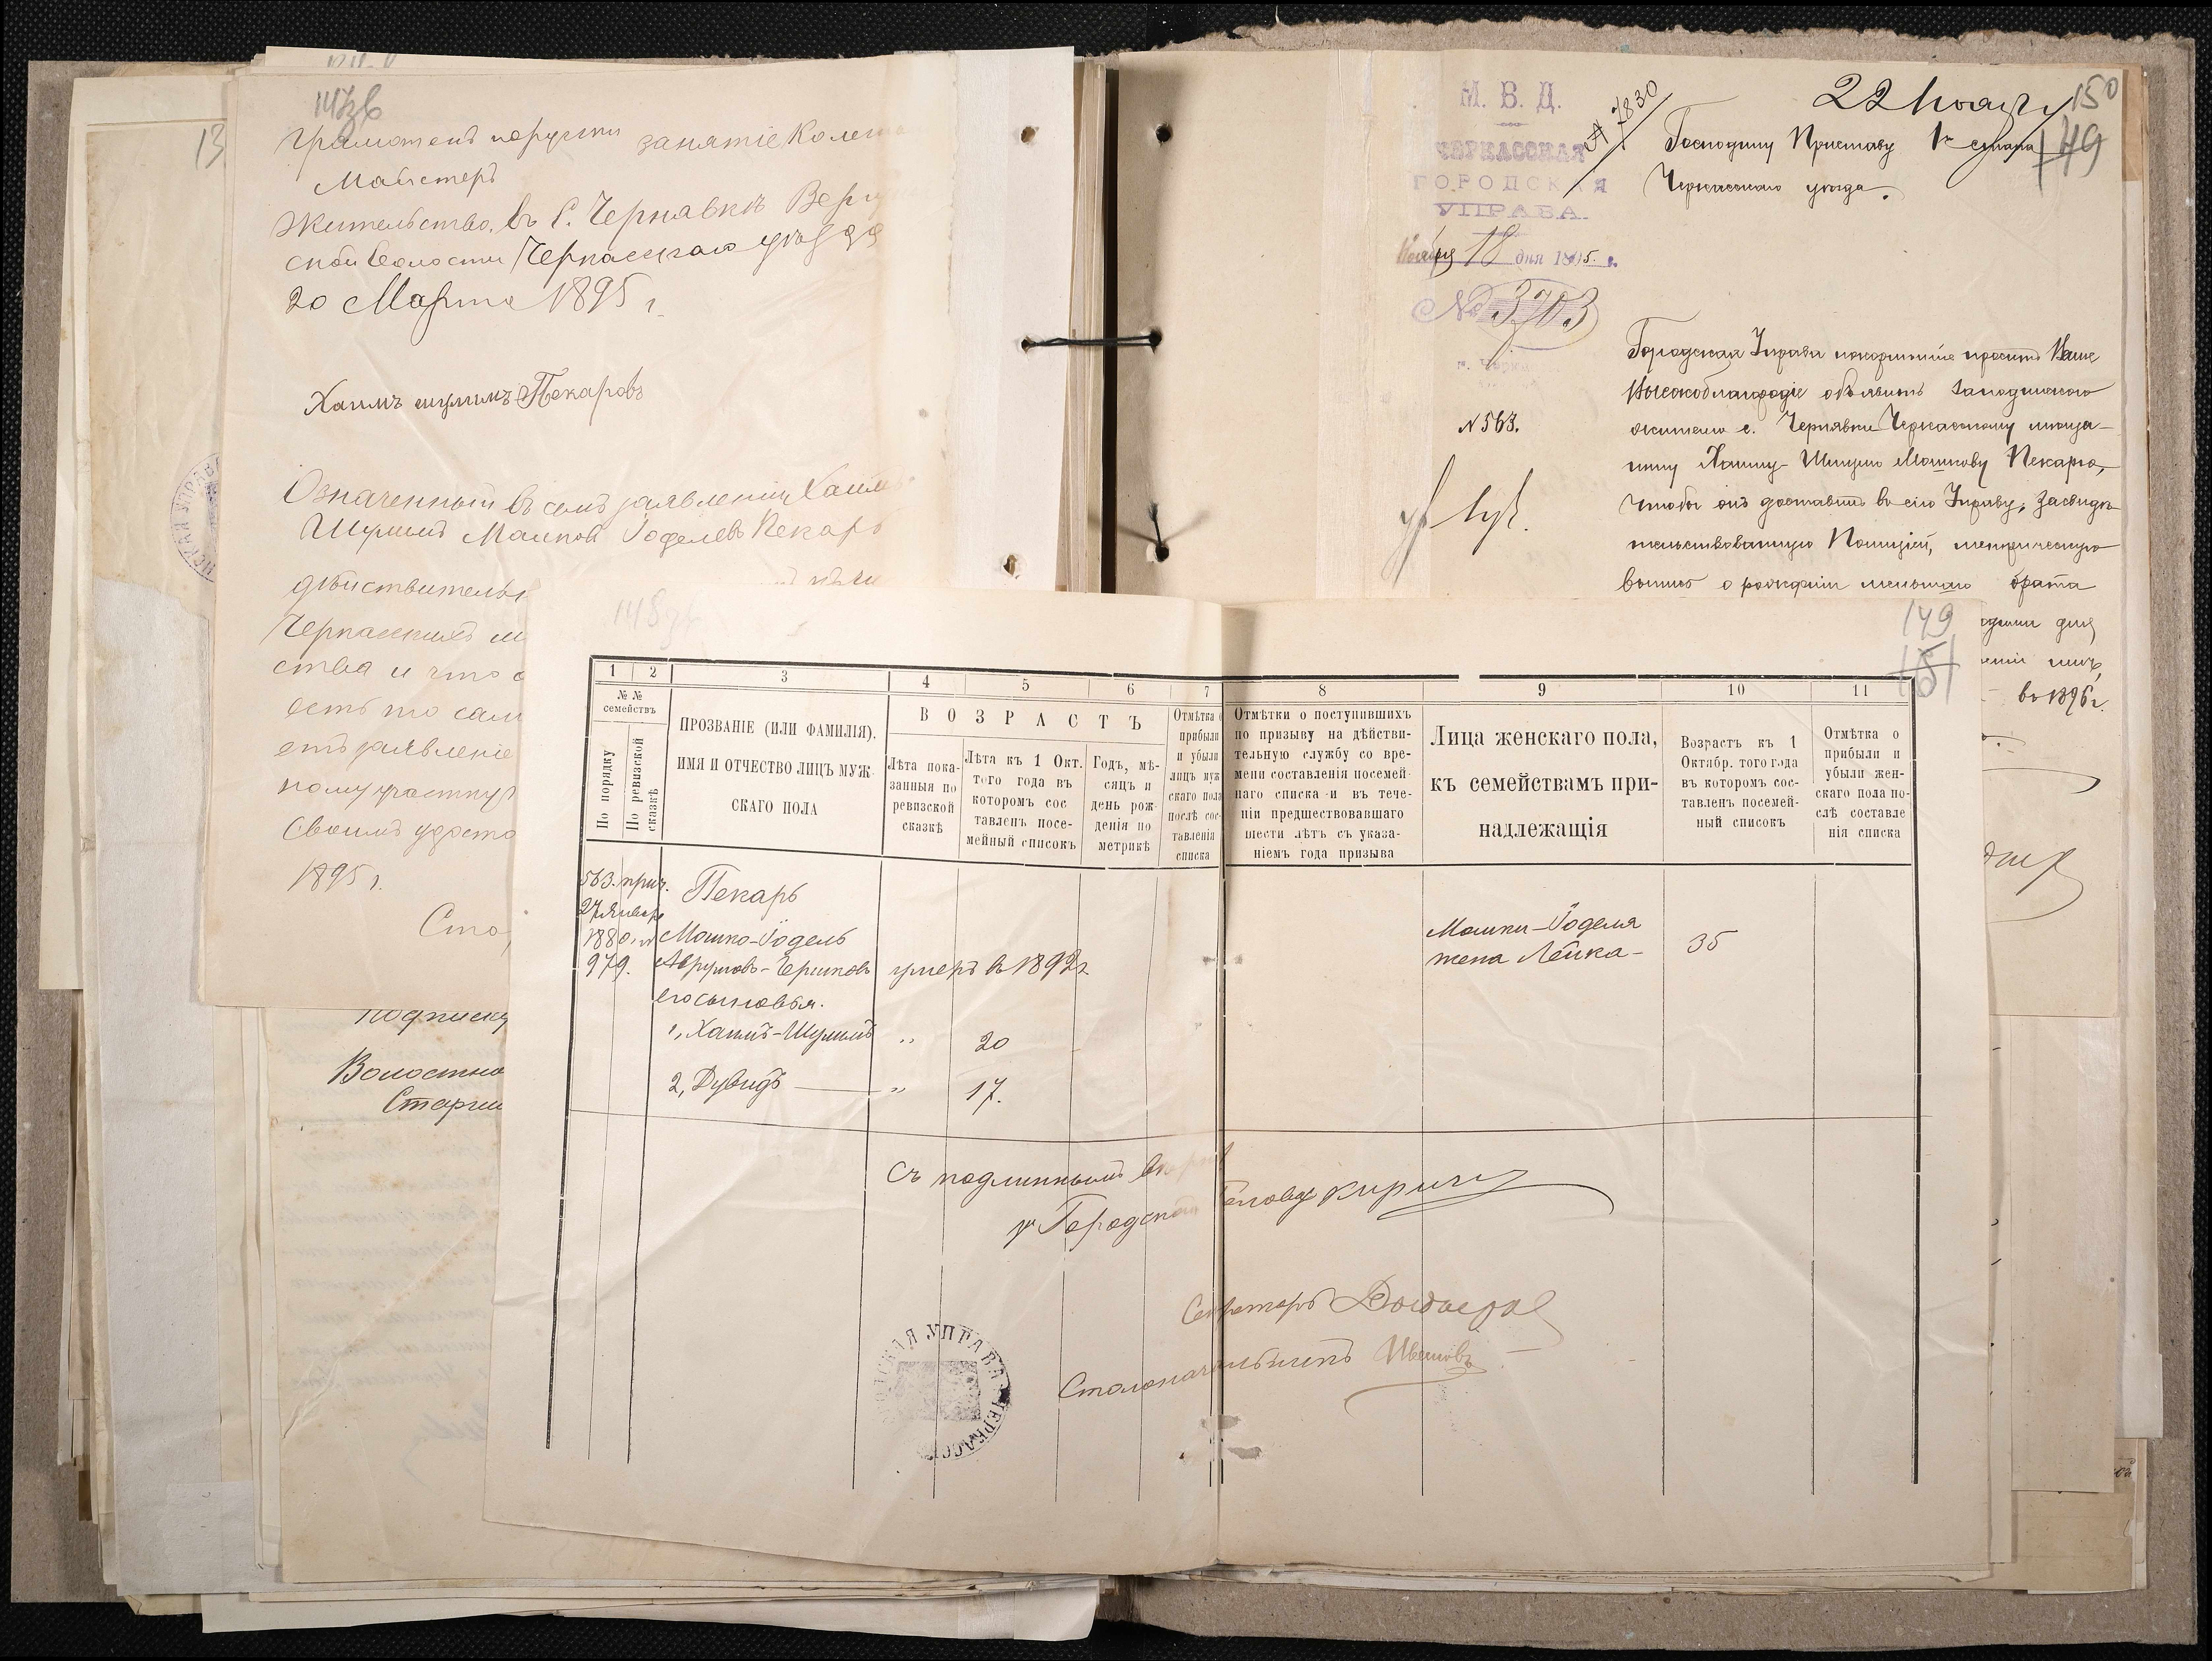 147зв
грамотенъ порусски занятіе Колесн
Майстеръ
жительство, въ С. Чернявкѣ Верг
ской Волости Черкасскаго уѣзда
20 Марта 1895 г.
Хаимъ шулимъ Пекаровъ
Означенный въ семъ заявленіи Хаимъ
Шулимъ Машков Іоделевъ Пекарь
дѣйствительн
Черкасскимъ м
ства и что о
есть то сам
етъ заявленіе
1895 г.
13
Подписку
Волостно
Старши
М. В. Д.
ЧЕРКАССКАЯ
ГОРОДСКАЯ
УПРАВА.
Ноября 18 дня 1895 г.
№ 3703
г. Черка
№ 563.
7830
22 Ноября
150
149
Господину Приставу 1го стана
Черкасскаго уѣзда.
Городская Управа покорнѣйше проситъ Ваше
Высокоблагородіе объявить
жителю с. Чернявки Черкасскому мѣща-
нину Хаиму-Шулиму Машкову Пекарю,
чтобы онъ доставилъ въ сію Управу, засвидѣ-
тельствованную Полиціей, метрическую
выпись о рожденіи меньшаго брата
дня
въ 1896 г.
148зв
149
151
1 2 3 4 5 6 7 8 9 10 11
№ №
семействъ
По порядку
По ревизской сказкѣ
ПРОЗВАНІЕ (ИЛИ ФАМИЛІЯ).
ИМЯ И ОТЧЕСТВО ЛИЦЪ МУЖ-
СКАГО ПОЛА
ВОЗРАСТЪ
Лѣта пока-
занныя по
ревизской
сказкѣ
Лѣта къ 1 Окт.
того года въ
которомъ сос
тавленъ посе-
мейный списокъ
Годъ, мѣ-
сяцъ и
день рож-
денія по
метрикѣ
Отмѣтка о
прибыли
и убыли
лицъ муж
скаго пола
послѣ сос-
тавленія
списка
Отмѣтки о поступившихъ
по призыву на дѣйстви-
тельную службу со вре-
мени составленія посемей-
наго списка и въ тече-
ніи предшествовавшаго
шести лѣтъ съ указа-
ніемъ года призыва
Лица женскаго пола,
къ семействамъ при-
надлежащія
Возрастъ къ 1
Октябр. того года
въ которомъ сос-
тавленъ посемей-
ный списокъ
Отмѣтка о
прибыли и
убыли жен-
скаго пола по-
слѣ составле
нія списка
563. прич.
27 Января
1880 г.
979.
Пекарь
Мошко-Іодель
Аврумовъ-Гершковъ умеръ въ 1892 г.
его сыновья.
1, Хаимъ-Шулимъ „ 20
2, Дувидъ „ 17.
Мошки-Іоделя
жена Лейка- 35
Съ подлиннымъ вѣрно
Городской Голова Киричъ
Секретарь
Столоначальникъ Ивановъ
СКАЯ УПРАВА ЧЕРКАССК